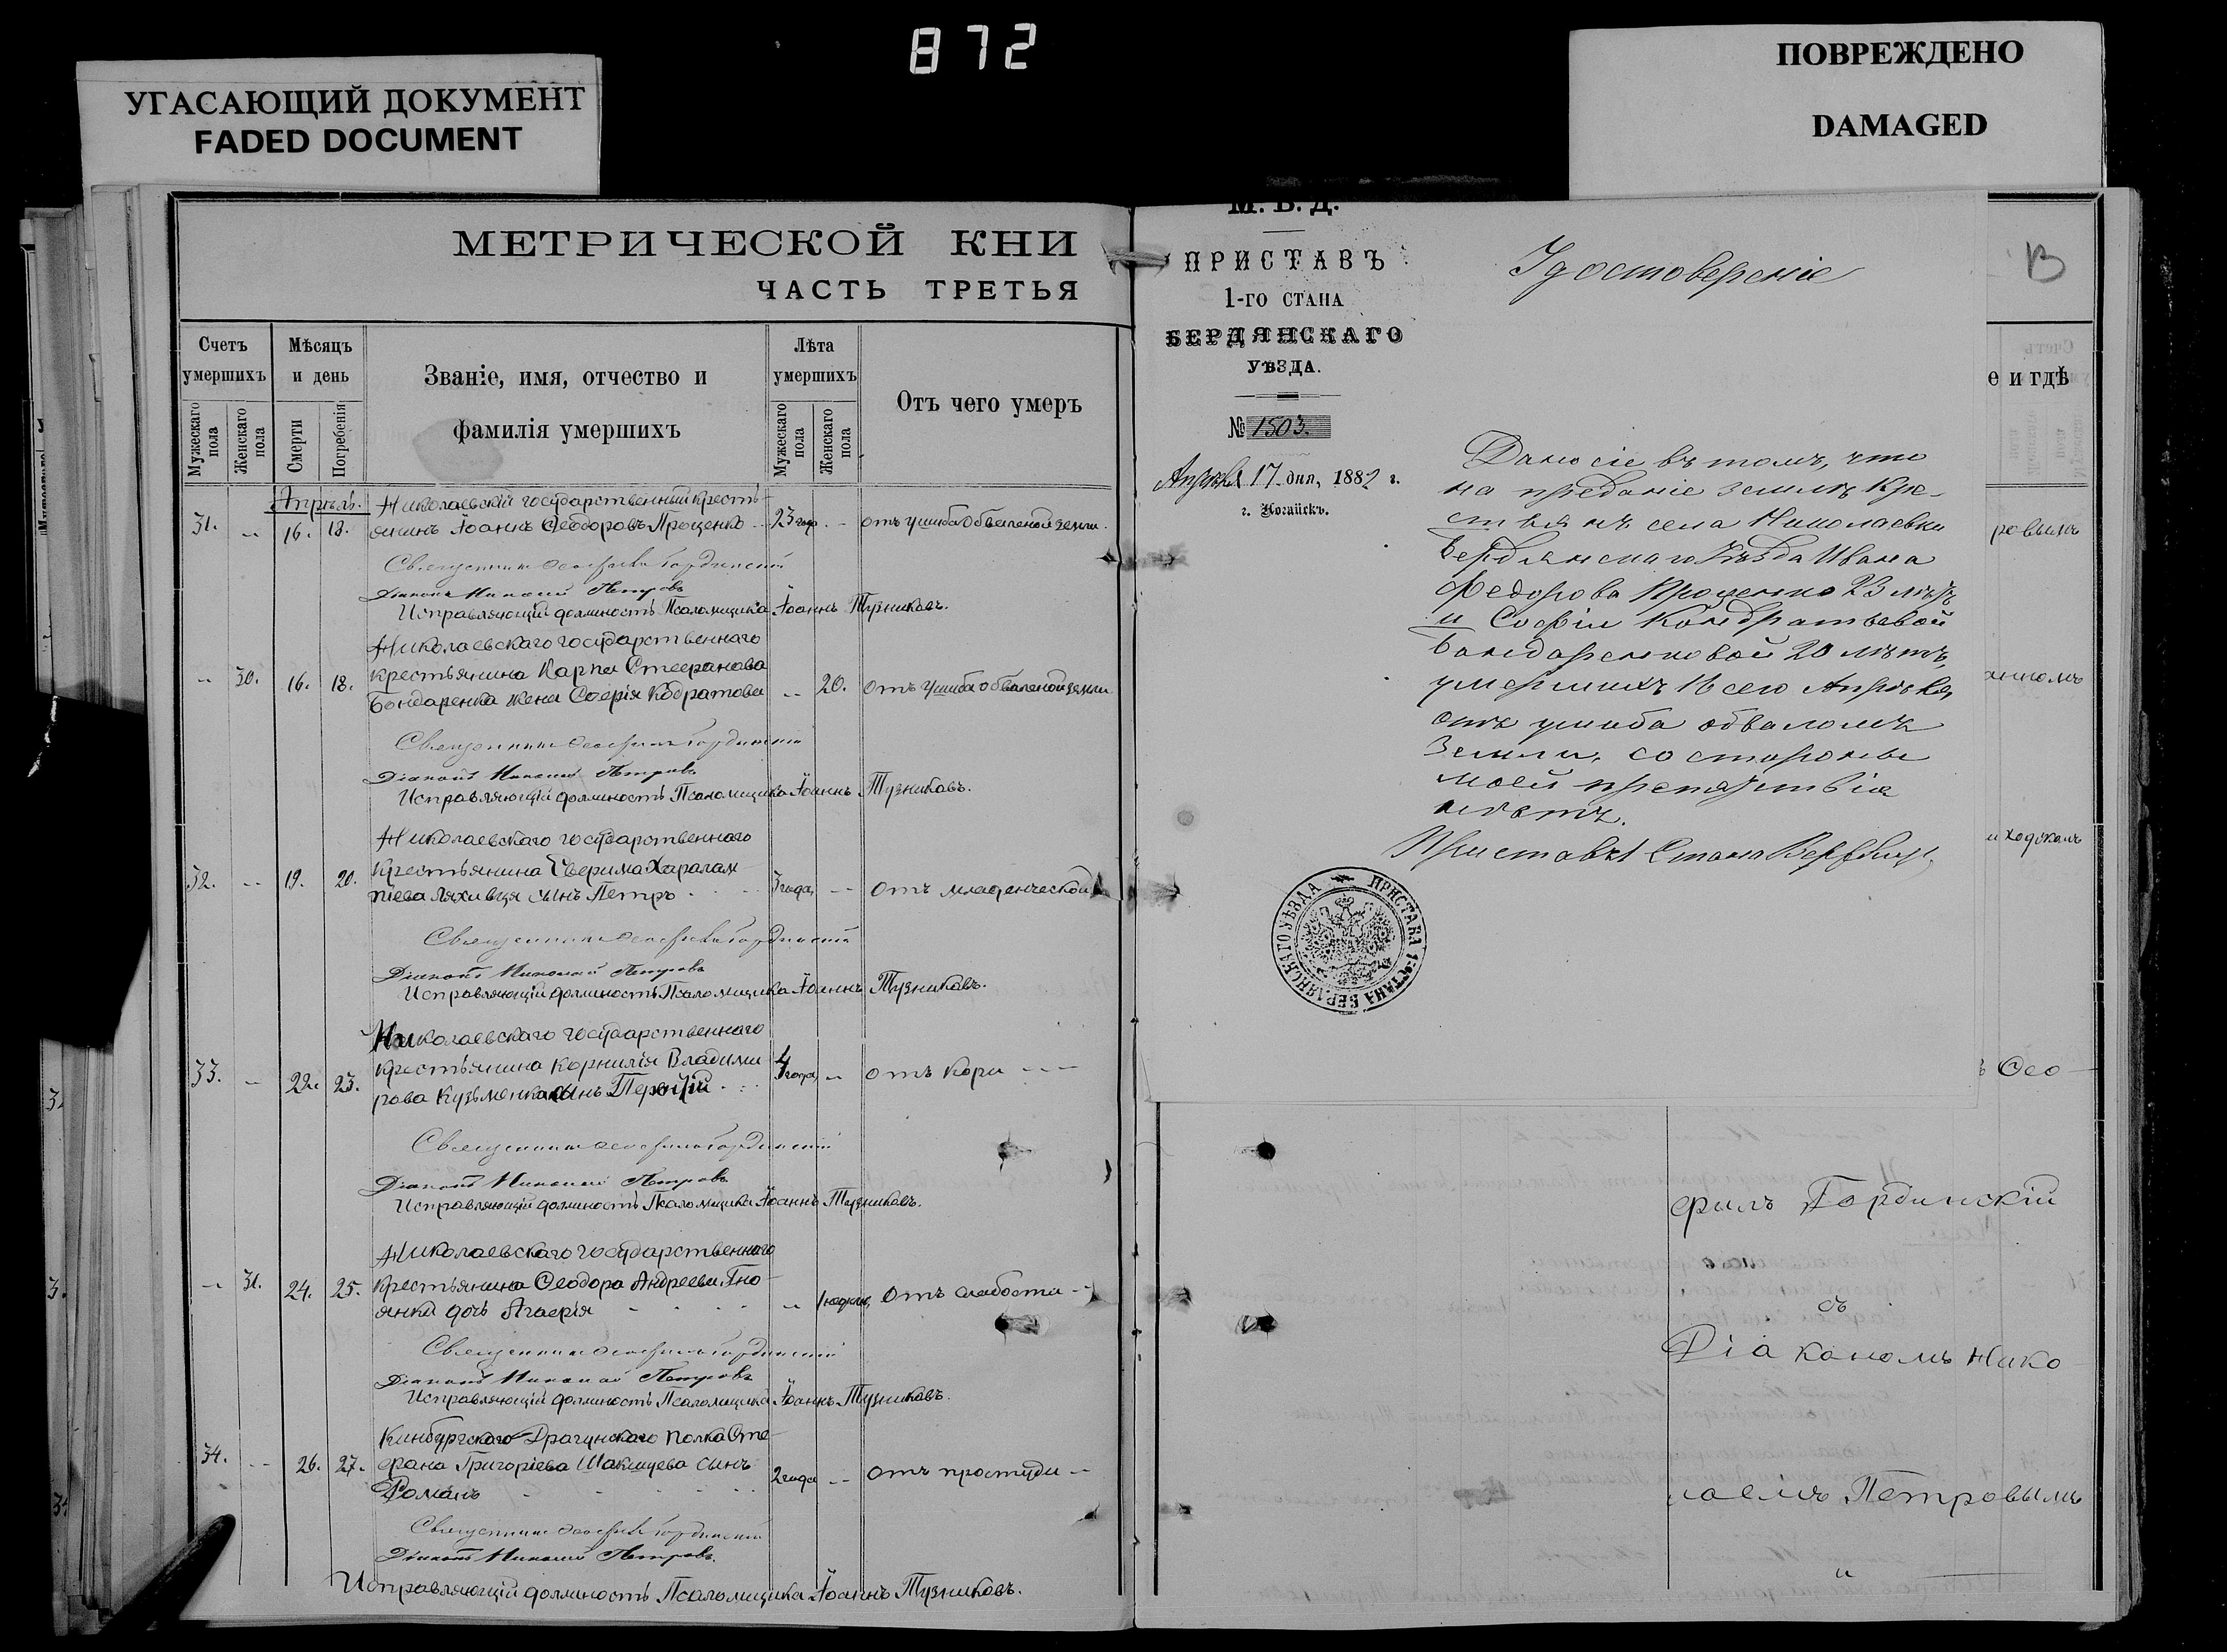 872
УГАСАЮЩИЙ ДОКУМЕНТ
FADED DOCUMENT
ПОВРЕЖДЕНО
DAMAGED
МЕТРИЧЕСКОЙ КНИ
ЧАСТЬ ТРЕТЬЯ
Счетъ умершихъ
Мужескаго пола
Женскаго пола
Мѣсяцъ и день
Смерти
Погребенія
Званіе, имя, отчество и
фамилія умершихъ
Лѣта умершихъ
Мужескаго пола
Женскаго пола
Отъ чего умеръ
Апрѣль.
Николаевскій государственный кресть-
31. -- 16. 18. янинъ Іоаннъ Ѳеодоровъ Проценко -- 23 год. -- отъ ушиба обваленой земли.
Священникъ Ѳеофилъ Гординскій
Діаконъ Николай Петровъ
Исправляющій должность Псаломщика Іоаннъ Тузниковъ.
Николаевскаго государственнаго
крестьянина Карпа Стефанова
-- 30. 16. 18. Бондаренка жена Софія Кодратова -- 20. отъ ушиба обваленой земли
Священникъ Ѳеофилъ Гординскій
Діаконъ Николай Петровъ
Исправляющій должность Псаломщика Іоаннъ Тузниковъ.
Николаевскаго государственнаго
32. -- 19. 20. крестьянина Сверима Харалам-
піева Ляхивця сынъ Петръ 3 года, -- отъ младенческой
Священникъ Ѳеофилъ Гординскій
Діаконъ Николай Петровъ
Исправляющій должность Псаломщика Іоаннъ Тузниковъ.
Николаевскаго государственнаго
33. -- 22. 23. крестьянина Корнилія Владими-
рова Кузьменка сынъ 4 года, -- отъ кори ---
Священникъ Ѳеофилъ Гординскій
Діаконъ Николай Петровъ
Исправляющій должность Псаломщика Іоаннъ Тузниковъ.
Николаевскаго государственнаго
-- 31. 24. 25. крестьянина Ѳеодора Андреева Гно-
янка дочь Агафія -- 1 недели, отъ слабости --
Священникъ Ѳеофилъ Гординскій
Діаконъ Николай Петровъ
Исправляющій должность Псаломщика Іоаннъ Тузниковъ.
Кинбургскаго Драгунскаго полка Сте-
34. -- 26. 27. фана Григоріева сынъ
Романъ 2 года -- отъ простуди --
Священникъ Ѳеофилъ Гординскій
Діаконъ Николай Петровъ.
Исправляющій должность Псаломщика Іоаннъ Тузниковъ.
М. В. Д.
ПРИСТАВЪ
1-го СТАНА
БЕРДЯНСКАГО
УѢЗДА.
№ 1503.
Апрѣля 17 дня, 1882 г.
г. Ногайскъ.
Удостовереніе
Дано сіе въ томъ, что
на преданіе землѣ кре-
стьянъ села Николаевки
Бердянскаго Уѣзда Ивана
Федорова Проценко 23 лѣтъ
и Софіи Кондратьевой
Бондаренковой 20 лѣтъ,
умершихъ 16 сего Апрѣля,
отъ ушиба обваломъ
земли, со стороны
моей препятствія
нѣтъ.
Приставъ 1 Стана
ПРИСТАВА 1-СТАНА БЕРДЯНСКАГО УѢЗДА
В
е и гдѣ
ровымъ
Ѳео-
филъ Гординскій
съ
Діакономъ Нико-
лаемъ Петровымъ
и